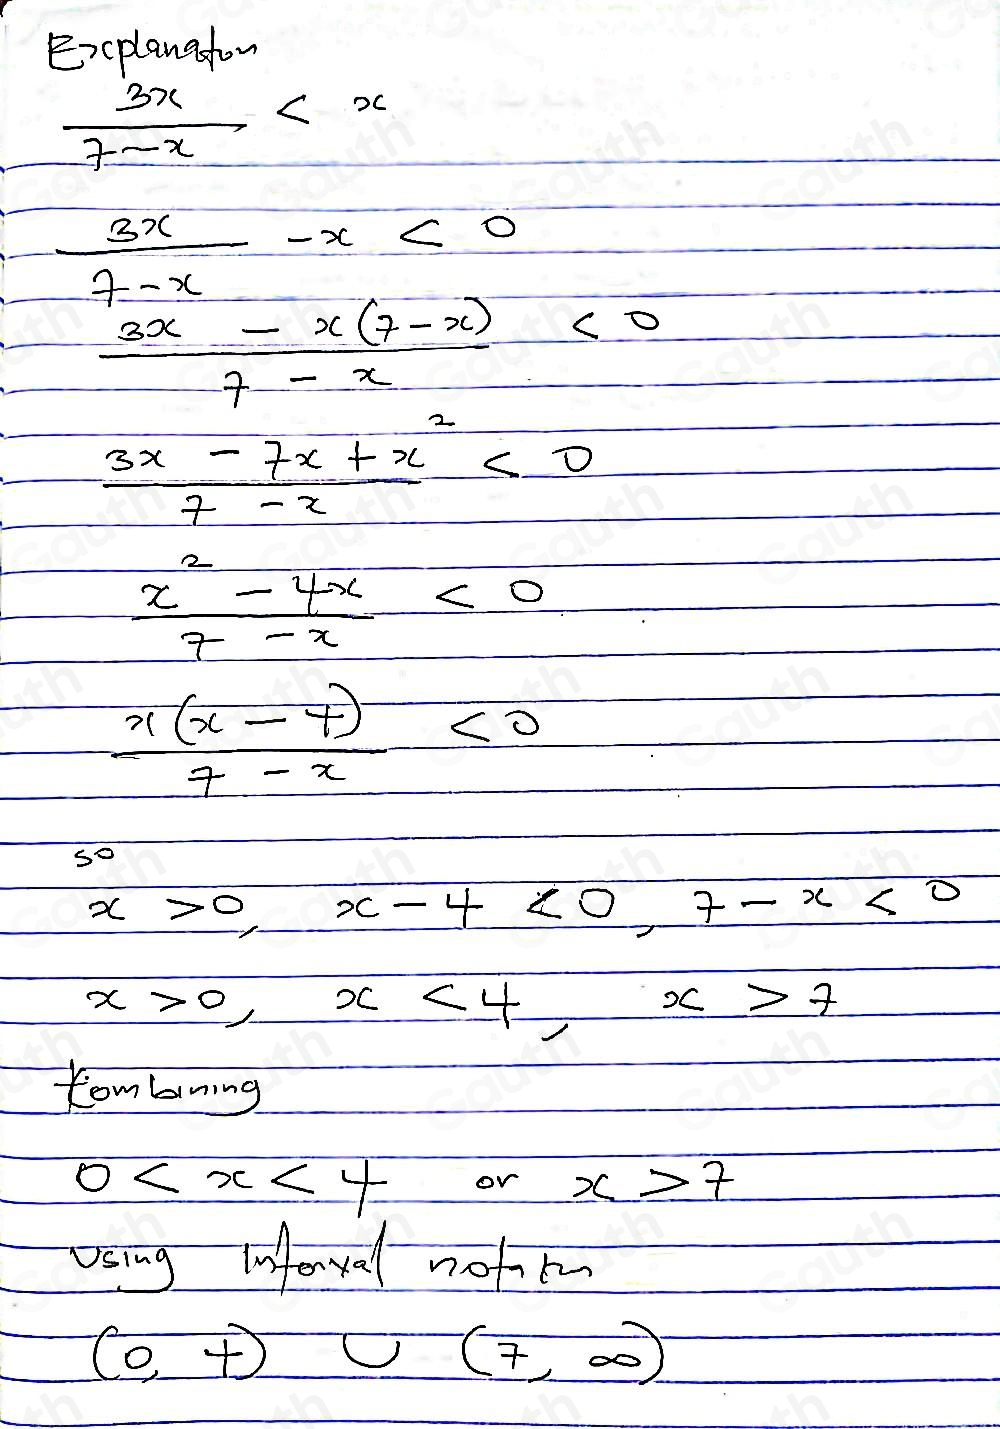 Explanation
3x / 7 - x < x
3x / 7 - x - x < 0
3x - x(7 - x) / 7 - x < 0
3x - 7x + x² / 7 - x < 0
x² - 4x / 7 - x < 0
x(x - 4) / 7 - x < 0
so
x > 0, x - 4 < 0, 7 - x < 0
x > 0, x < 4, x > 7
Combining
0 < x < 4 or x > 7
Using Interval notation
(0, 4) ∪ (7, ∞)